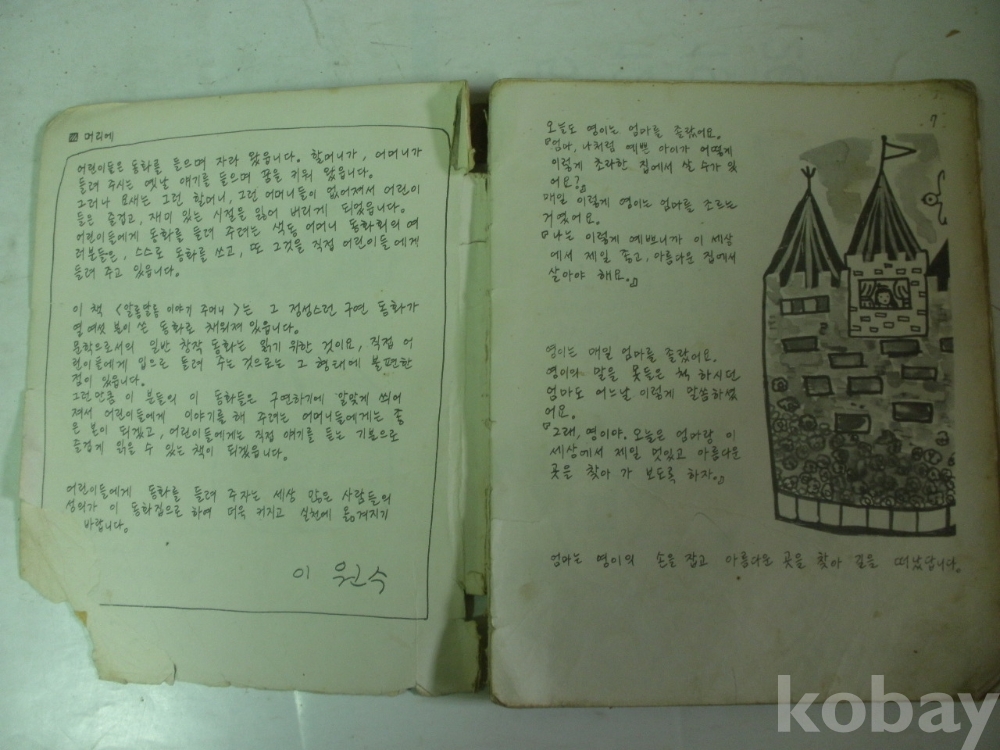 머리에
어린이들은 동화를 들으며 자라 왔읍니다. 할머니가, 어머니가
들려 주시는 옛날 얘기를 들으며 꿈을 키워 왔읍니다.
그러나 요새는 그런 할머니, 그런 어머니들이 없어져서 어린이
들은 즐겁고, 재미 있는 시절을 잃어 버리게 되었읍니다.
어린이들에게 동화를 들려 주려는 색동 어머니 동화회의 여
러분들은, 스스로 동화를 쓰고, 또 그것을 직접 어린이들에게
들려 주고 있읍니다.
이 책 <알롱달롱 이야기 주머니>는 그 정성스런 구연 동화가
열 여섯 분이 쓴 동화로 채워져 있읍니다.
문학으로서의 일반 창작 동화는 읽기 위한 것이요, 직접 어
린이들에게 입으로 들려 주는 것으로는 그 형태에 불편한
점이 있읍니다.
그런만큼 이 분들의 이 동화들은 구연하기에 알맞게 씌어
져서 어린이들에게 이야기를 해 주려는 어머니들에게는 좋
은 본이 되겠고, 어린이들에게는 직접 얘기를 듣는 기분으로
즐겁게 읽을 수 있는 책이 되겠읍니다.
어린이들에게 동화를 들려 주자는 세상 많은 사람들의
성의가 이 동화집으로 하여 더욱 커지고 실천에 옮겨지기
바랍니다.
이 원수
7
오늘도 영이는 엄마를 졸랐어요.
『엄마, 나처럼 예쁜 아이가 어떻게
이렇게 초라한 집에서 살 수가 있
어요?』
매일 이렇게 영이는 엄마를 조르는
거였어요.
『나는 이렇게 예쁘니까 이 세상
에서 제일 좋고, 아름다운 집에서
살아야 해요.』
영이는 매일 엄마를 졸랐어요.
영이의 말을 못들은 척 하시던
엄마도 어느날 이렇게 말씀하셨
어요.
『그래, 영이야. 오늘은 엄마랑 이
세상에서 제일 멋있고 아름다운
곳을 찾아 가 보도록 하자.』
엄마는 영이의 손을 잡고 아름다운 곳을 찾아 길을 떠났답니다.
kobay